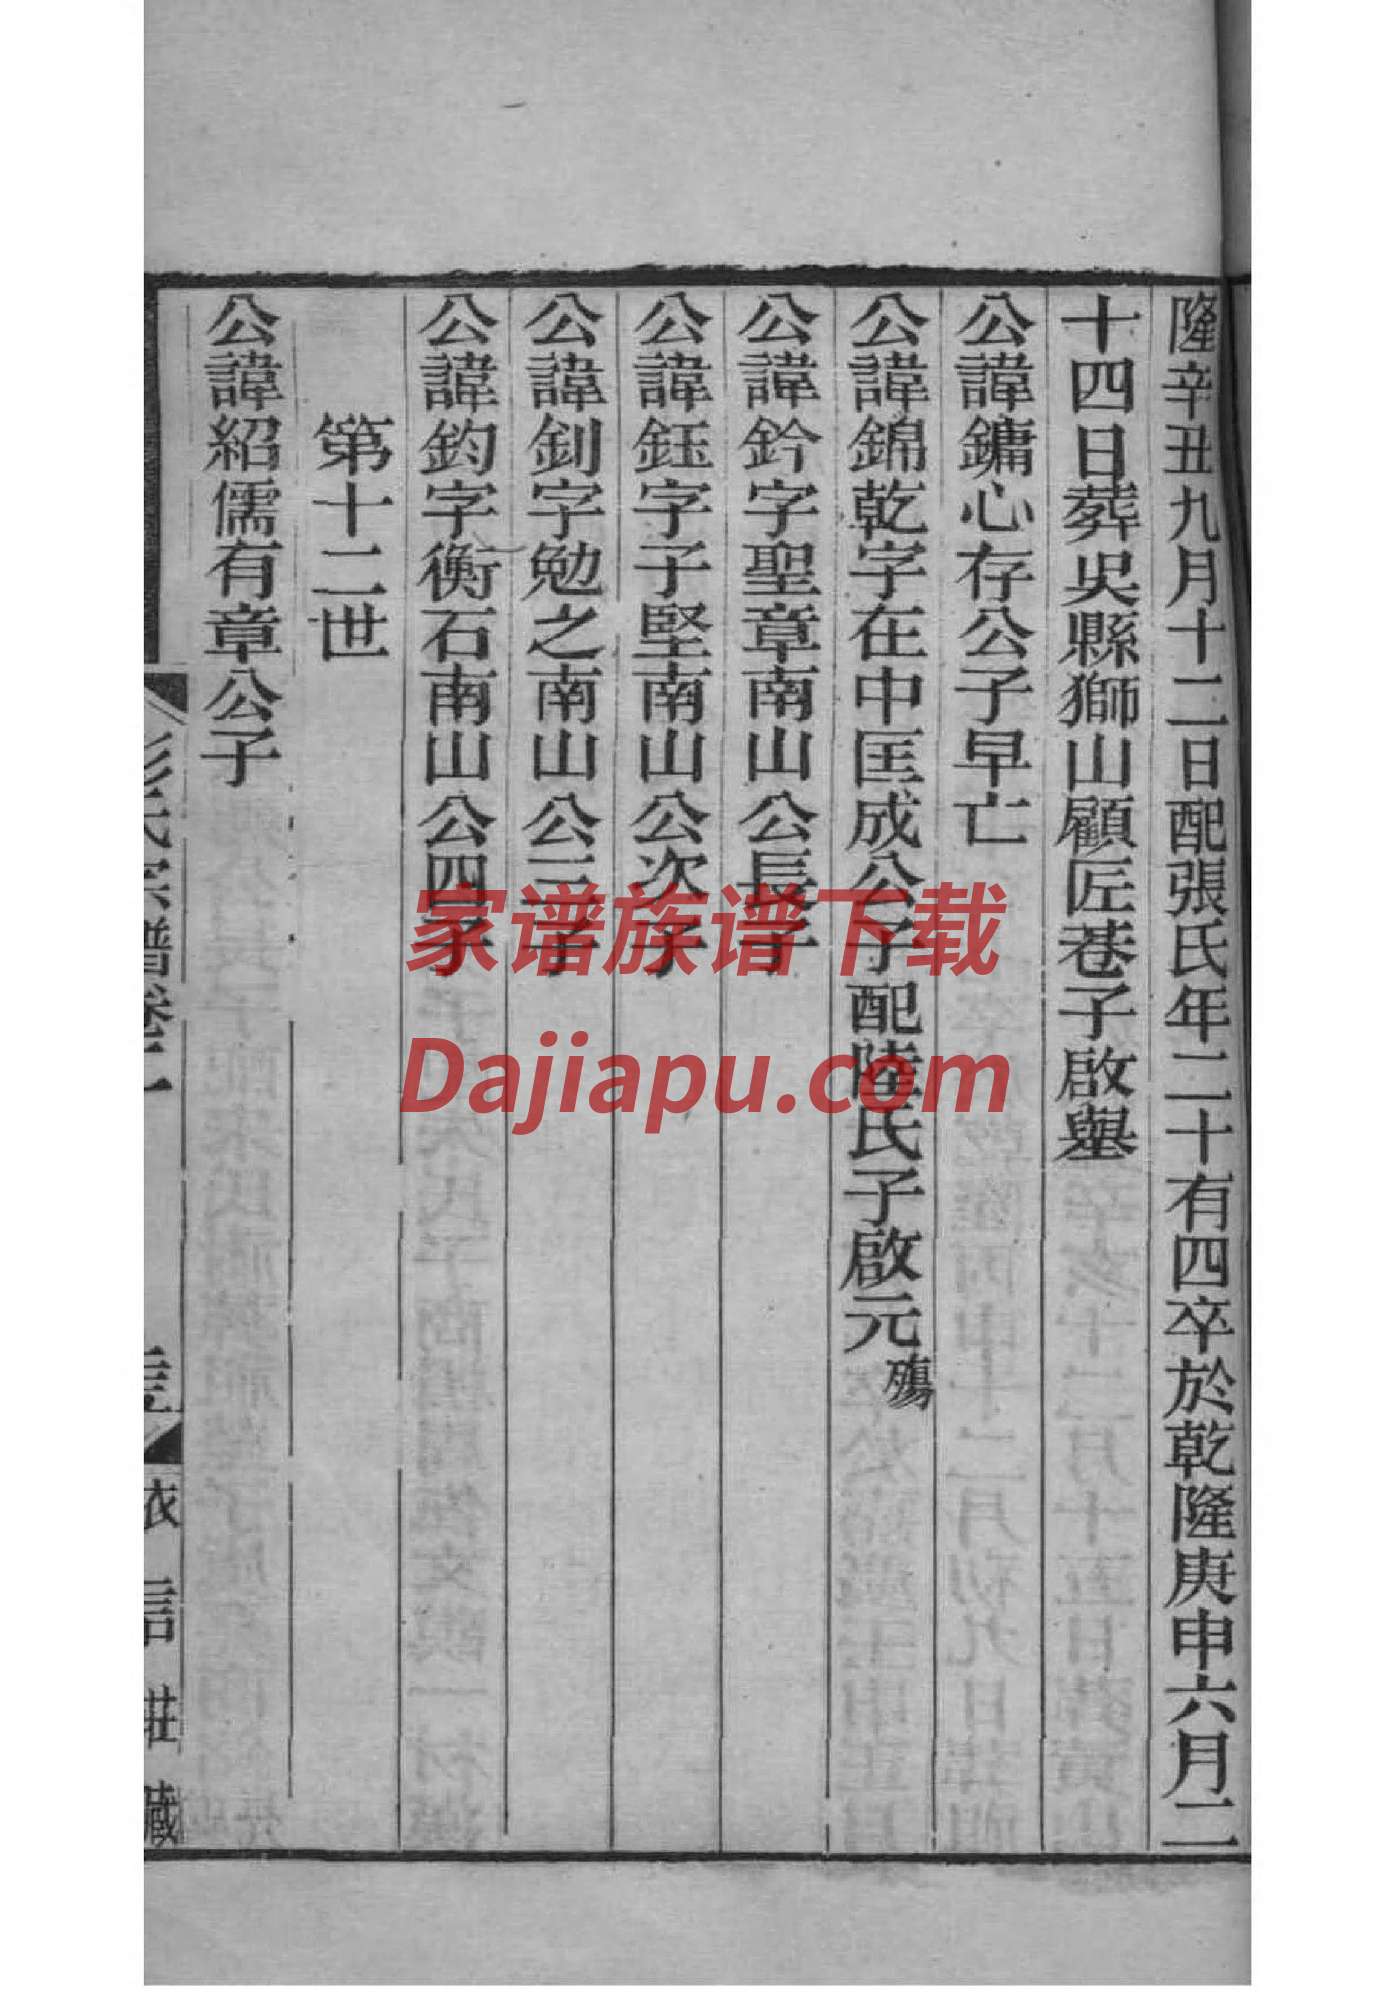 隆辛丑九月十二日配張氏年二十有四卒於乾隆庚申六月二
十四日葬吳縣獅山顧匠巷子啟舉
公諱鏞心存公子早亡
公諱錦乾字在中匡成公子配陸氏子啟元殤
公諱鈐字聖章南山公長子
公諱鈺字子堅南山公次子
公諱釗字勉之南山公三子
公諱鈞字衡石南山公四子
第十二世
公諱紹儒有章公子
彭氏宗譜卷二
衣言莊藏
家谱族谱下载
Dajiapu.com